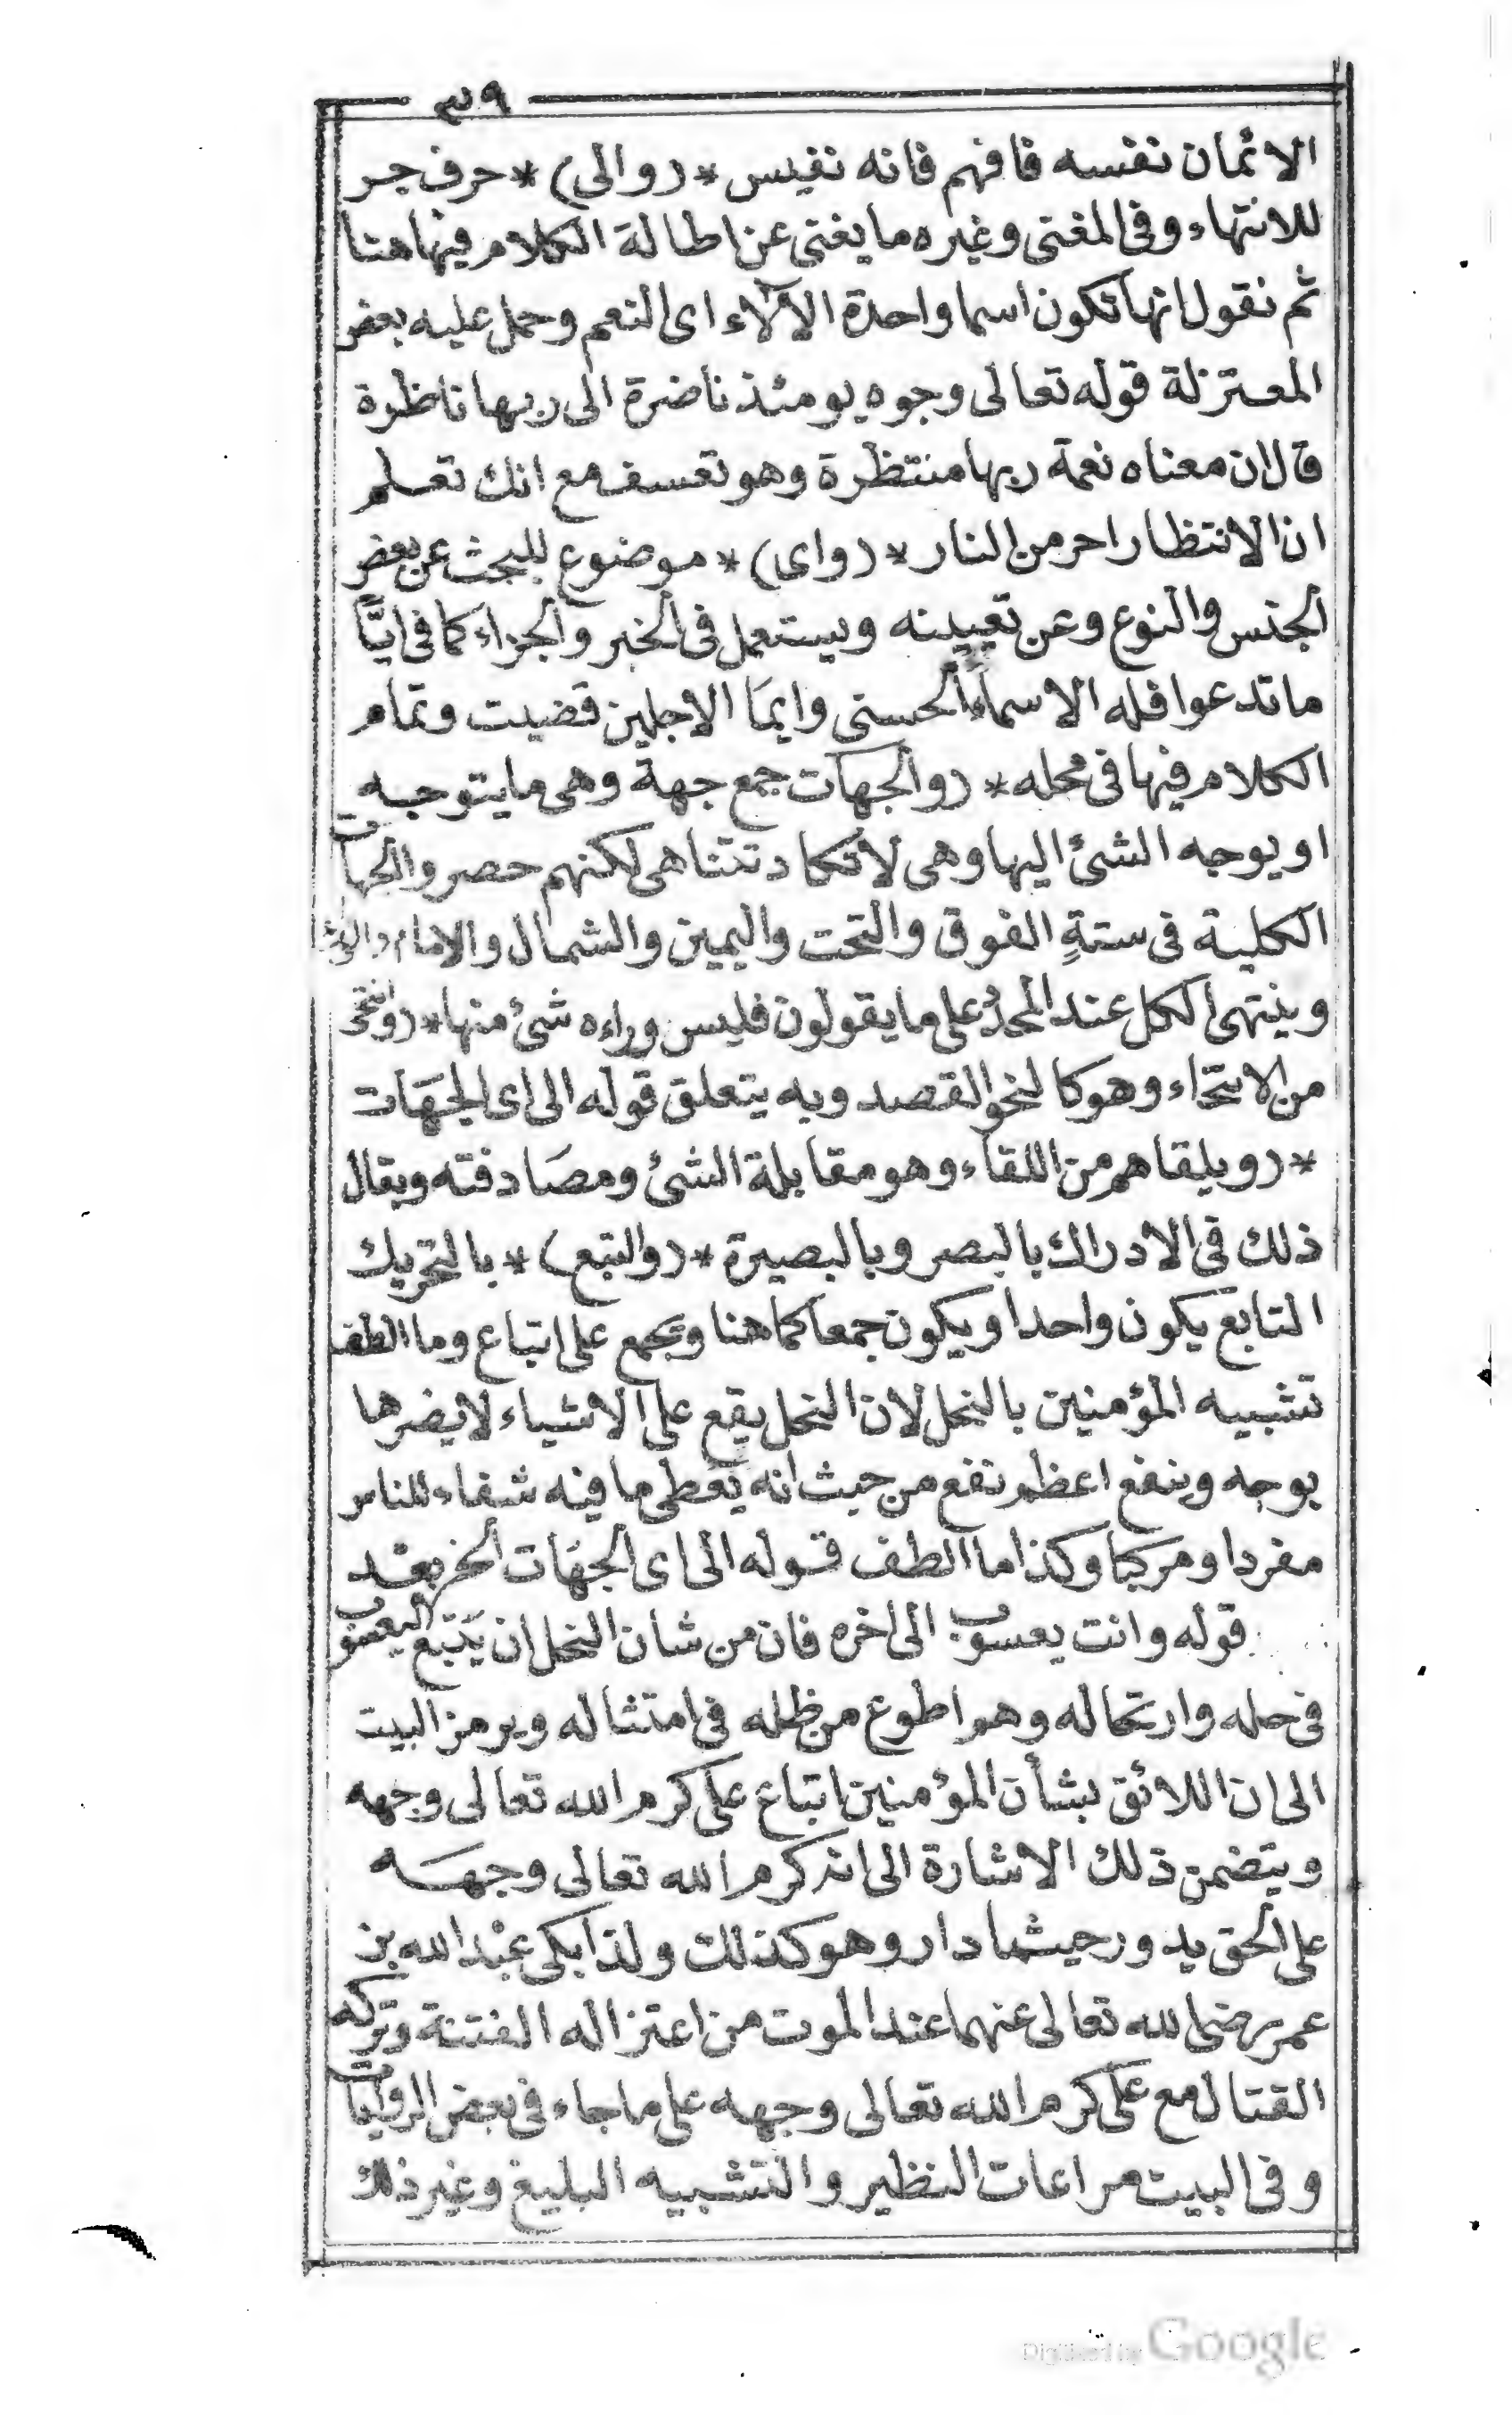 ٣٩
الائمان نفسه فافهم فانه نفيس * (والى) * حرف جر
للانتهاء وفى المغنى وغيره ما يغنى عن اطالة الكلام فيها هنا
ثم نقول انها تكون اسما واحدة الآلاء اى النعم وحمل عليه بعض
المعتزلة قوله تعالى وجوه يومئذ ناضرة الى ربها ناظرة
قال ان معناه نعمة ربها منتظرة وهو تعسف مع انك تعلم
ان الانتظار احر من النار * (واى) * موضوع للبحث عن بعض
الجنس والنوع وعن تعيينه ويستعمل فى الخبر والجزاء كما فى ايًّا
ما تدعوا فله الاسماء الحسنى وايمَا الاجلين قضيت وتمام
الكلام فيها فى محله * (والجهات جمع جهة وهى ما يتوجه
او يوجه الشئ اليها وهى لا تكاد تتناهى لكنهم حصروا الجهات
الكلية فى ستةٍ الفوق والتحت واليمين والشمال والامام والوراء
وينتهى الكل عند المحدد على ما يقولون فليس وراءه شئ منها * (وانتحى
من الانتحاء وهو كالنحو القصد وبه يتعلق قوله الى اى الجهَات
* (ويلقاهم من اللقاء وهو مقابلة الشئ ومصَادفته ويقال
ذلك فى الادراك بالبصر وبالبصيرة * (والتبع) * بالتحريك
التابع يكون واحدا ويكون جمعا كما هنا ويجمع على اتباع وما الطف
تشبيه المؤمنين بالنحل لان النحل يقع على الاشياء لا يضرها
بوجه وينفع اعظم نفع من حيث انه يعطى ما فيه شفاء للناس
مفردا ومركبا وكذا ما الطف قوله الى اى الجهَات الخ بعْد
قوله وانت يعسوب الى اخره فان من شان النحل ان يَتبع اليعسوب
فى حله وارتحاله وهو اطوع من ظله فى امتثاله ويرمز البيت
الى ان اللائق بشأن المؤمنين اتباع على كرم الله تعالى وجهه
ويتضمن ذلك الاشارة الى انه كرم الله تعالى وجهَه
على الحق يدور حيثما دار وهو كذلك ولذا بكى عبْد الله بن
عمر رضى الله تعالى عنهما عند الموت من اعتزاله الفتنة وتركه
القتال مع على كرم الله تعالى وجهه على ما جاء فى بعض الروايات
وفى البيت مراعات النظير والتشبيه البليغ وغير ذلك
Digitized by Google